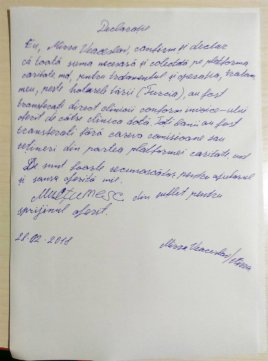 Declarație
Eu, Mirza Veaceslav, confirm și declar
că toată suma necesară și colectată pe platforma
caritate.md, pentru tratamentul și operația,
meu, peste hotarele țării (Turcia), au fost
transferate direct clinicii conform invoice-ului
oferit de către clinica dată. Toți banii au fost
transferați fără careva comisioane sau
rețineri din partea platformei caritate.md
Vă sunt foarte recunoscător, pentru ajutorul
și șansa oferită mie.
MULȚUMESC din suflet pentru
sprijinul oferit.
28.02.2018
Mirza Veaceslav